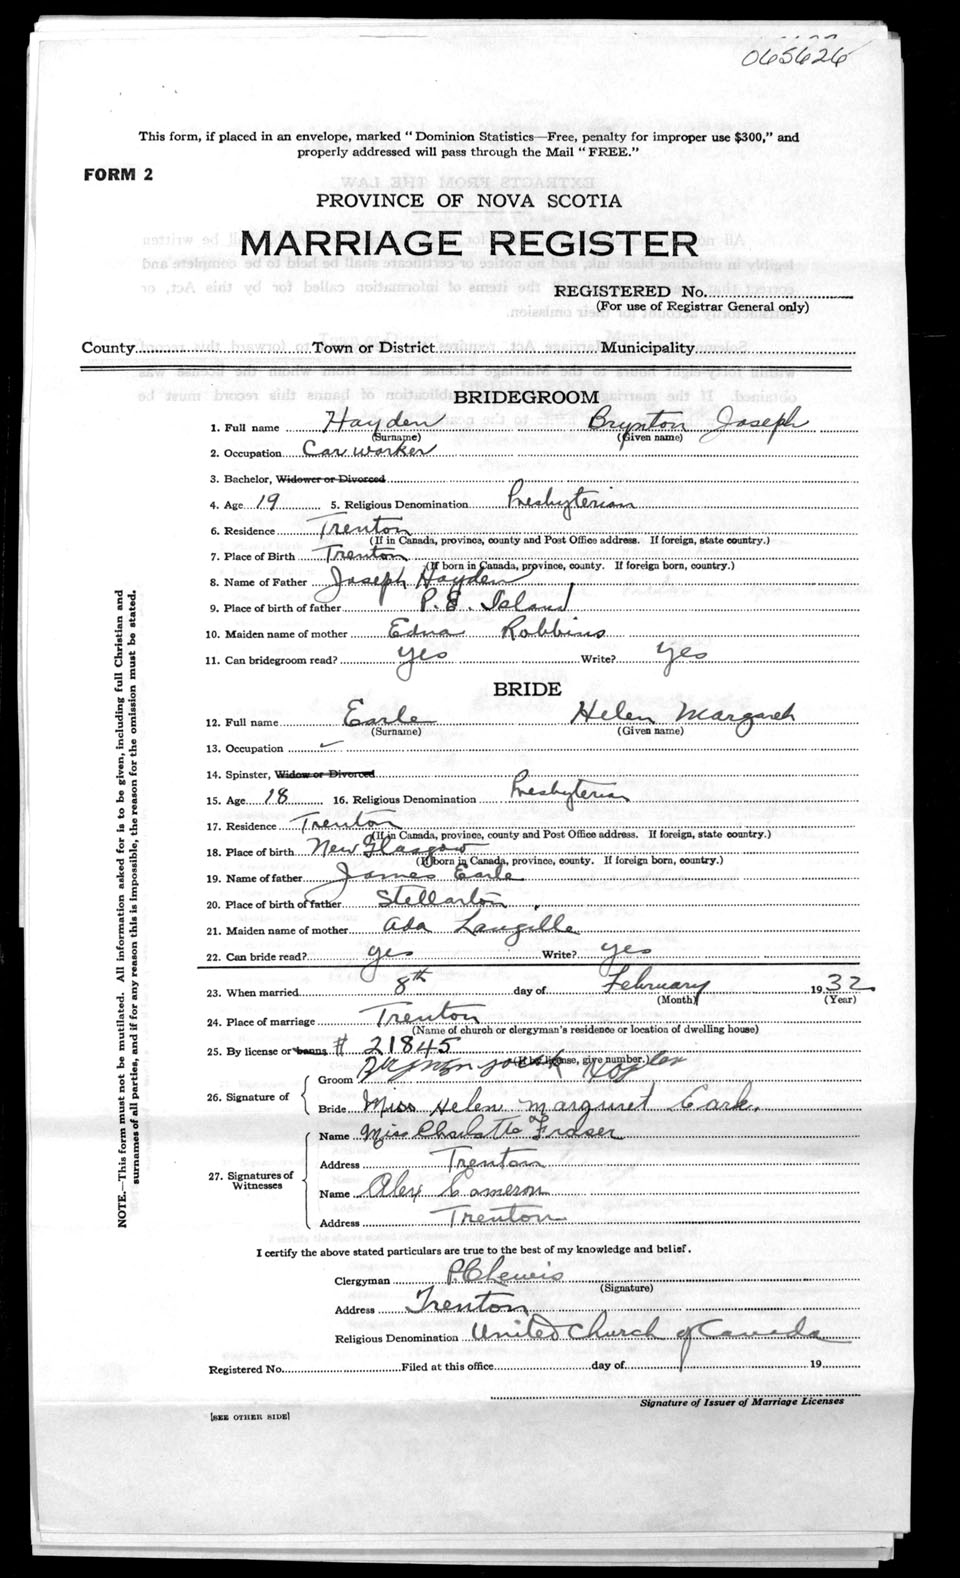 065626
This form, if placed in an envelope, marked "Dominion Statistics—Free, penalty for improper use $300," and
properly addressed will pass through the Mail "FREE."
FORM 2
PROVINCE OF NOVA SCOTIA
MARRIAGE REGISTER
REGISTERED No.
(For use of Registrar General only)
County Town or District Municipality
BRIDEGROOM
1. Full name Hayden Brynton Joseph
(Surname) (Given name)
2. Occupation Car worker
3. Bachelor, Widower or Divorced
4. Age 19 5. Religious Denomination Presbyterian
6. Residence Trenton
(If in Canada, province, county and Post Office address. If foreign, state country.)
7. Place of Birth Trenton
(If born in Canada, province, county. If foreign born, country.)
8. Name of Father Joseph Hayden
9. Place of birth of father P. E. Island
10. Maiden name of mother Edna Robbins
11. Can bridegroom read? yes Write? yes
BRIDE
12. Full name Earle Helen Margaret
(Surname) (Given name)
13. Occupation
14. Spinster, Widow or Divorced
15. Age 18 16. Religious Denomination Presbyterian
17. Residence Trenton
(If in Canada, province, county and Post Office address. If foreign, state country.)
18. Place of birth New Glasgow
(If born in Canada, province, county. If foreign born, country.)
19. Name of father James Earle
20. Place of birth of father Stellarton
21. Maiden name of mother Ada Langille
22. Can bride read? yes Write? yes
23. When married 8th day of February 1932
(Month) (Year)
24. Place of marriage Trenton
(Name of church or clergyman's residence or location of dwelling house)
25. By license or banns # 21845
(If by license, give number.)
26. Signature of
Groom
Bride Miss Helen Margaret Earle.
27. Signatures of Witnesses
Name Miss Charlotte Fraser
Address Trenton
Name Alex Cameron
Address Trenton
I certify the above stated particulars are true to the best of my knowledge and belief.
Clergyman P. C. Lewis
(Signature)
Address Trenton
Religious Denomination United Church of Canada
Registered No. Filed at this office day of 19
Signature of Issuer of Marriage Licenses
[SEE OTHER SIDE]
NOTE.—This form must not be mutilated. All information asked for is to be given, including full Christian and
surnames of all parties, and if for any reason this is impossible, the reason for the omission must be stated.